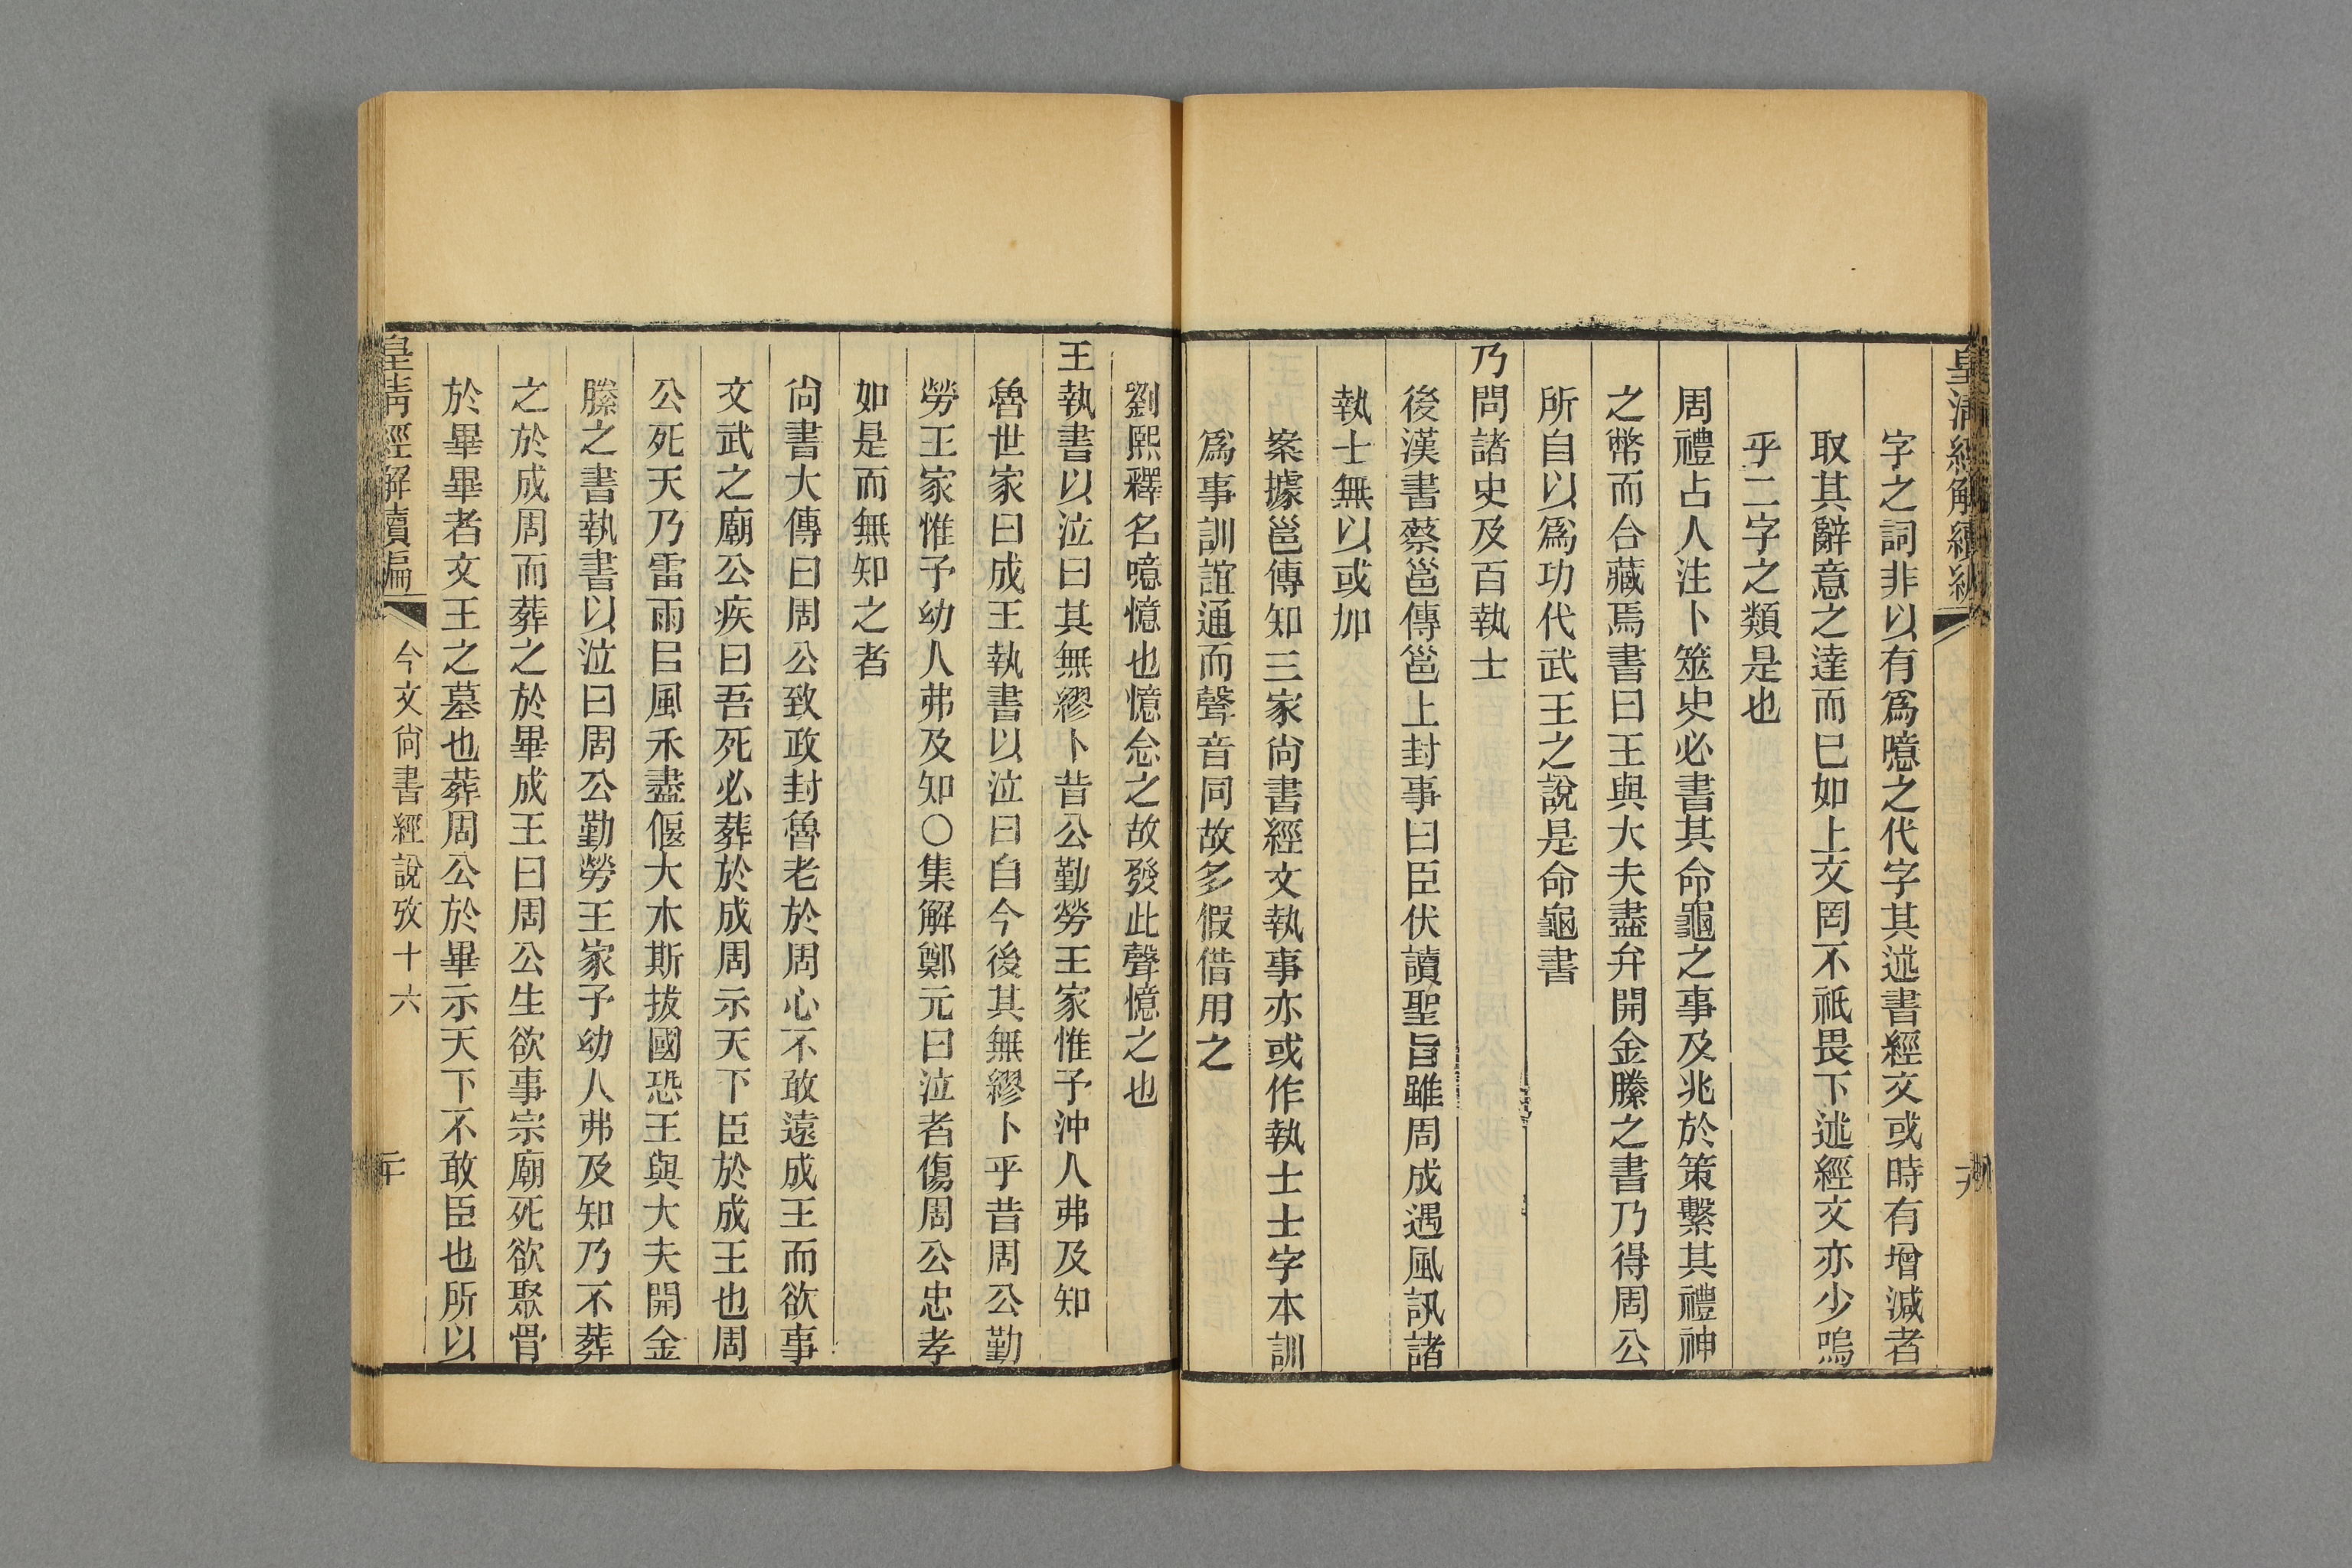 字之詞非以有爲噫之代字其述書經文或時有增減者
取其辭意之達而已如上文罔不祇畏下述經文亦少嗚
乎二字之類是也
周禮占人注卜筮史必書其命龜之事及兆於策繫其禮神
之幣而合藏焉書曰王與大夫盡弁開金縢之書乃得周公
所自以爲功代武王之說是命龜書
乃問諸史及百執士
後漢書蔡邕傳邕上封事曰臣伏讀聖旨雖周成遇風訊諸
執士無以或加
案據邕傳知三家尙書經文執事亦或作執士士字本訓
爲事訓誼通而聲音同故多假借用之
劉熙釋名噫憶也憶念之故發此聲憶之也
王執書以泣曰其無繆卜昔公勤勞王家惟予沖人弗及知
魯世家曰成王執書以泣曰自今後其無繆卜乎昔周公勤
勞王家惟予幼人弗及知〇集解鄭元曰泣者傷周公忠孝
如是而無知之者
尙書大傳曰周公致政封魯老於周心不敢遠成王而欲事
文武之廟公疾曰吾死必葬於成周示天下臣於成王也周
公死天乃雷雨㠯風禾盡偃大木斯拔國恐王與大夫開金
縢之書執書以泣曰周公勤勞王家予幼人弗及知乃不葬
之於成周而葬之於畢成王曰周公生欲事宗廟死欲聚骨
於畢畢者文王之墓也葬周公於畢示天下不敢臣也所以
皇清經解續編
今文尙書經說攷十六